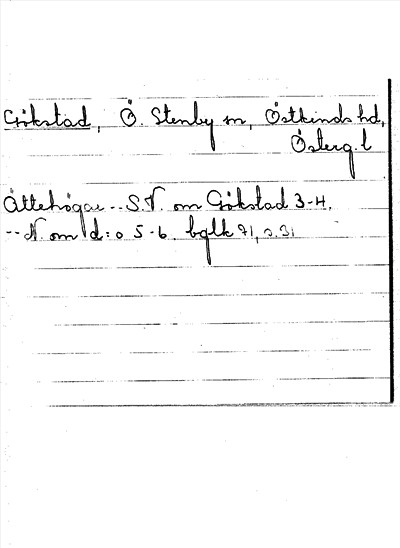 Gökstad, Ö. Stenby sn, Östkinds hd,
Österg. l
Ättehögar -- S.V. om Gökstad 3-4,
-- N. om d:o 5-6. bglk 71, s. 31